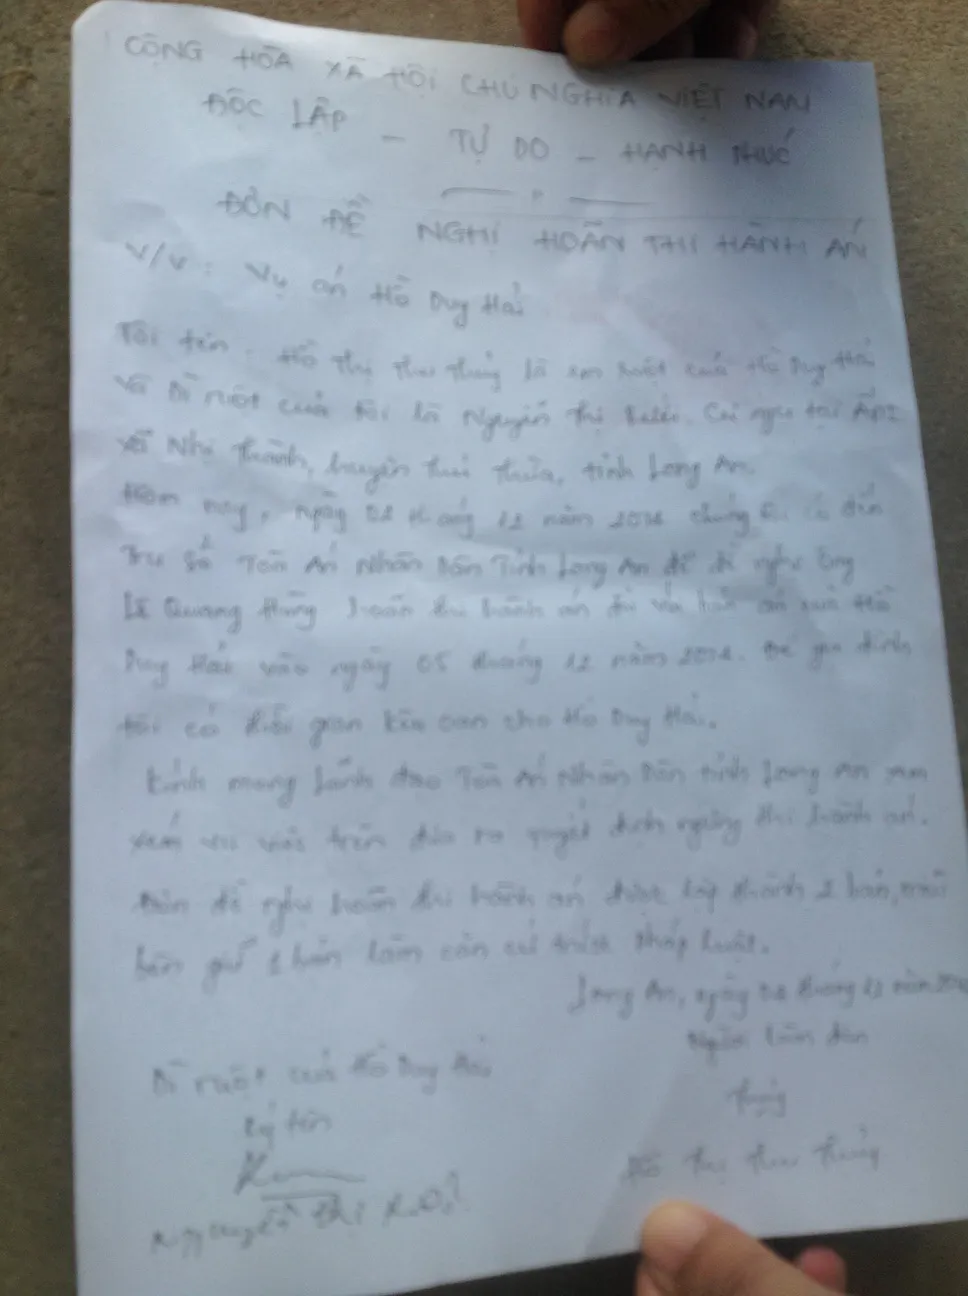 CỘNG HÒA XÃ HỘI CHỦ NGHĨA VIỆT NAM
ĐỘC LẬP - TỰ DO - HẠNH PHÚC
ĐƠN ĐỀ NGHỊ HOÃN THI HÀNH ÁN
V/v : Vụ án Hồ Duy Hải
Tôi tên : Hồ Thị Thu Thủy là em ruột của Hồ Duy Hải
Và Dì ruột của tôi là Nguyễn Thị. Cư ngụ tại Ấp 2
xã Nhị Thành, huyện Thủ Thừa, tỉnh Long An.
Hôm nay, ngày tháng 12 năm 2014 chúng tôi có đến
Trụ sở Tòa Án Nhân Dân Tỉnh Long An để đề nghị ông
Lê Quang Hùng hoãn thi hành án đối với bản án của Hồ
Duy Hải vào ngày 05 tháng 12 năm 2014. Để gia đình
tôi có thời gian kêu oan cho Hồ Duy Hải.
Kính mong lãnh đạo Tòa Án Nhân Dân tỉnh Long An xem
xét vụ việc trên đưa ra quyết định ngừng thi hành án.
Đơn đề nghị hoãn thi hành án được lập thành 2 bản, mỗi
bên giữ 1 bản làm căn cứ trước pháp luật.
Long An, ngày tháng 12 năm
Người làm đơn
Dì ruột của Hồ Duy Hải
Ký tên
Thủy
Hồ Thị Thu Thủy
Nguyễn Thị